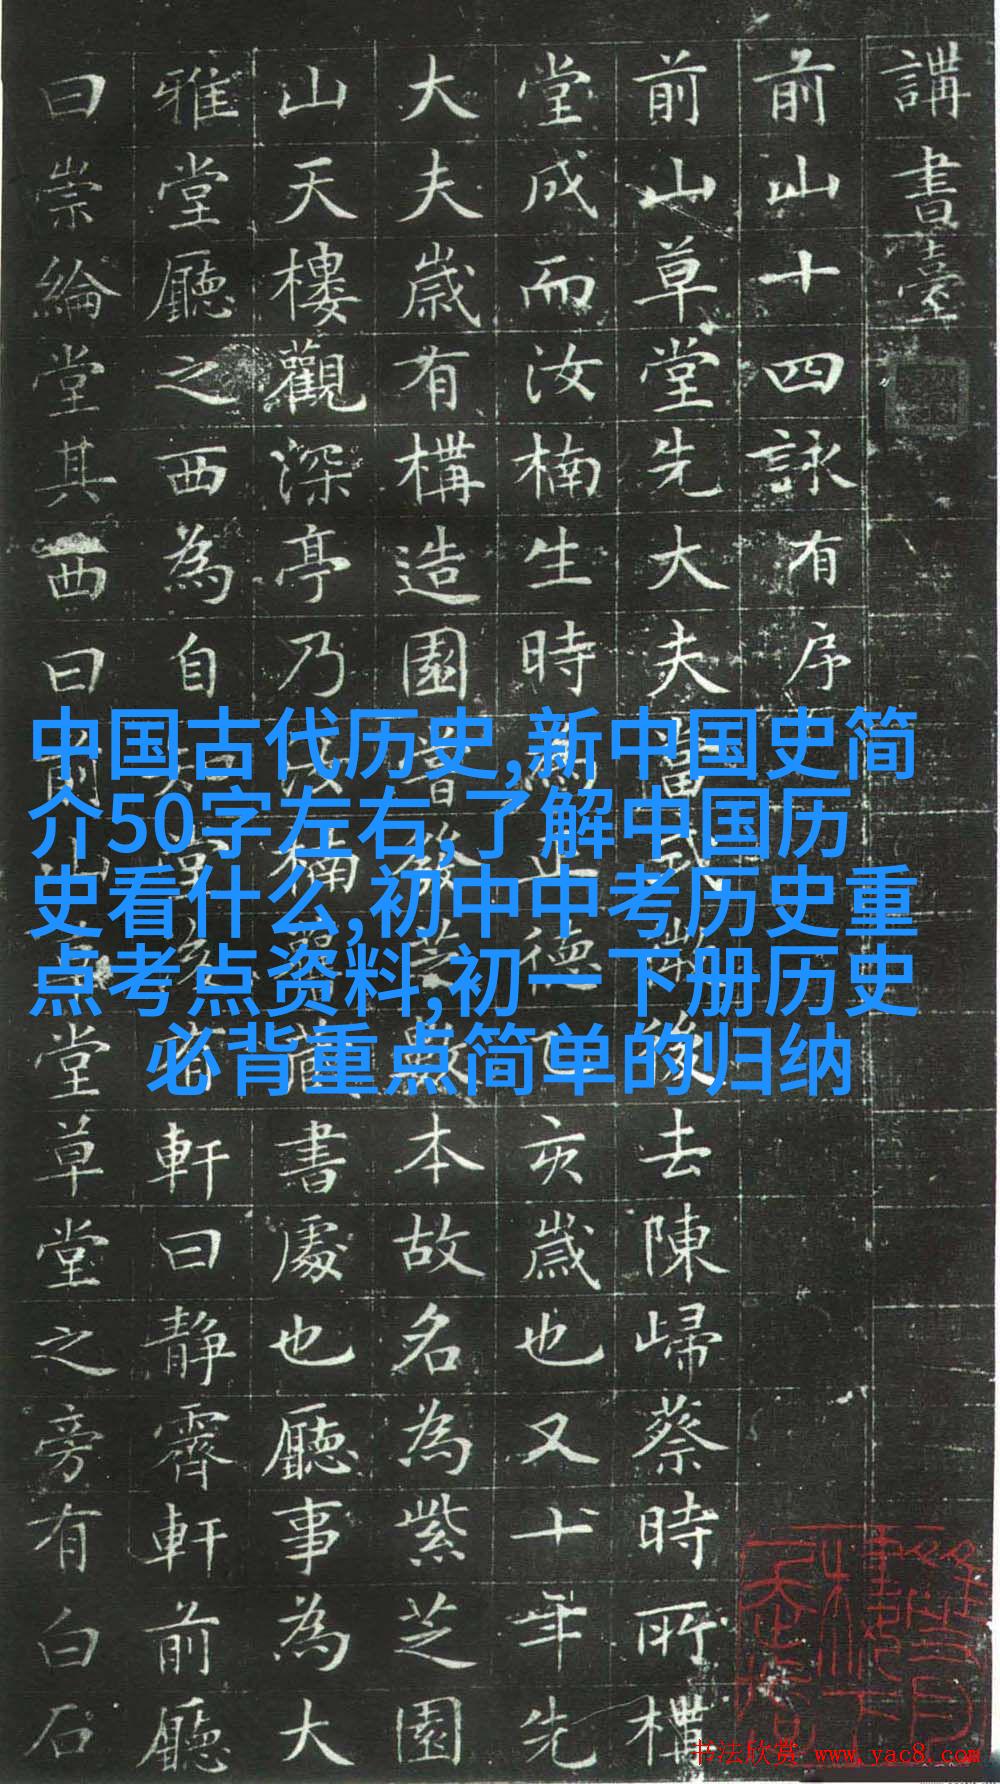 講書臺
前山十四詠有序
前山草堂先大夫 去陳歸蔡時所構
堂成而汝楠生時 亥歲也又十年先
大夫歲有構造園 本故名為紫芝園
山天樓觀深亭乃 書處也廳事為大
雅堂廳之西為自 軒曰靜霽軒前廳
曰崇綸堂其西曰前山草堂草堂之旁有白石
中国古代历史,新中国史简
介50字左右,了解中国历
史看什么,初中中考历史重
点考点资料,初一下册历史
必背重点简单的归纳
书法欣赏 www.yac8.com